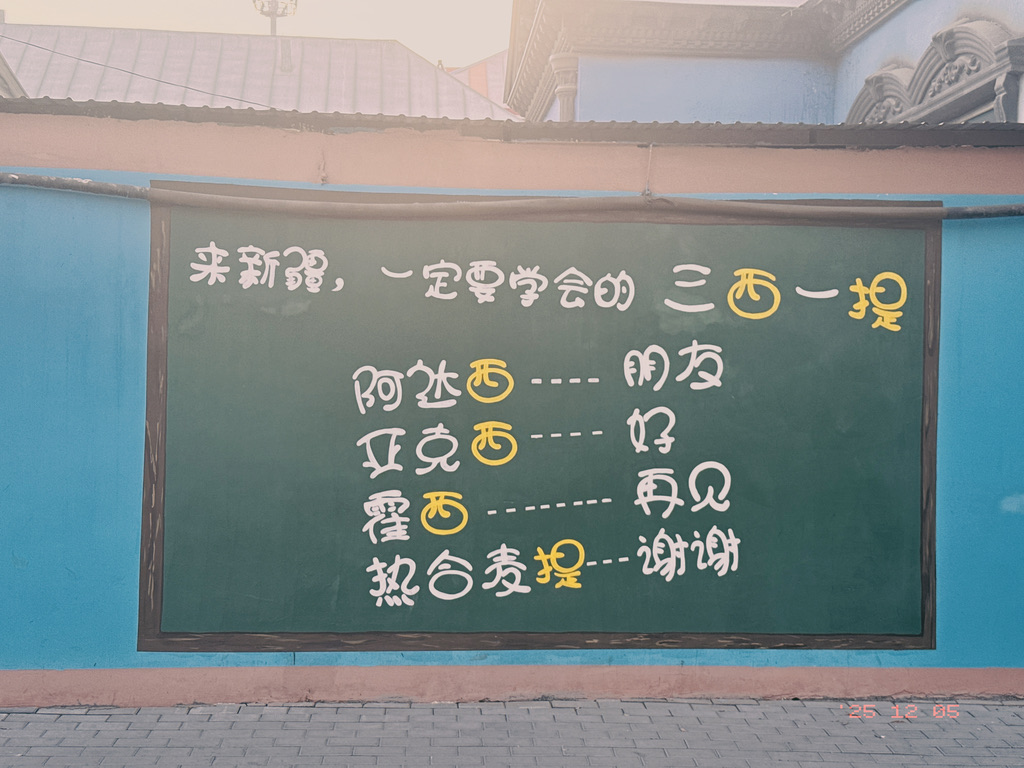 来新疆，一定要学会的 三西一提
阿达西----朋友
亚克西----好
霍西-------再见
热合麦提---谢谢
'25 12 05